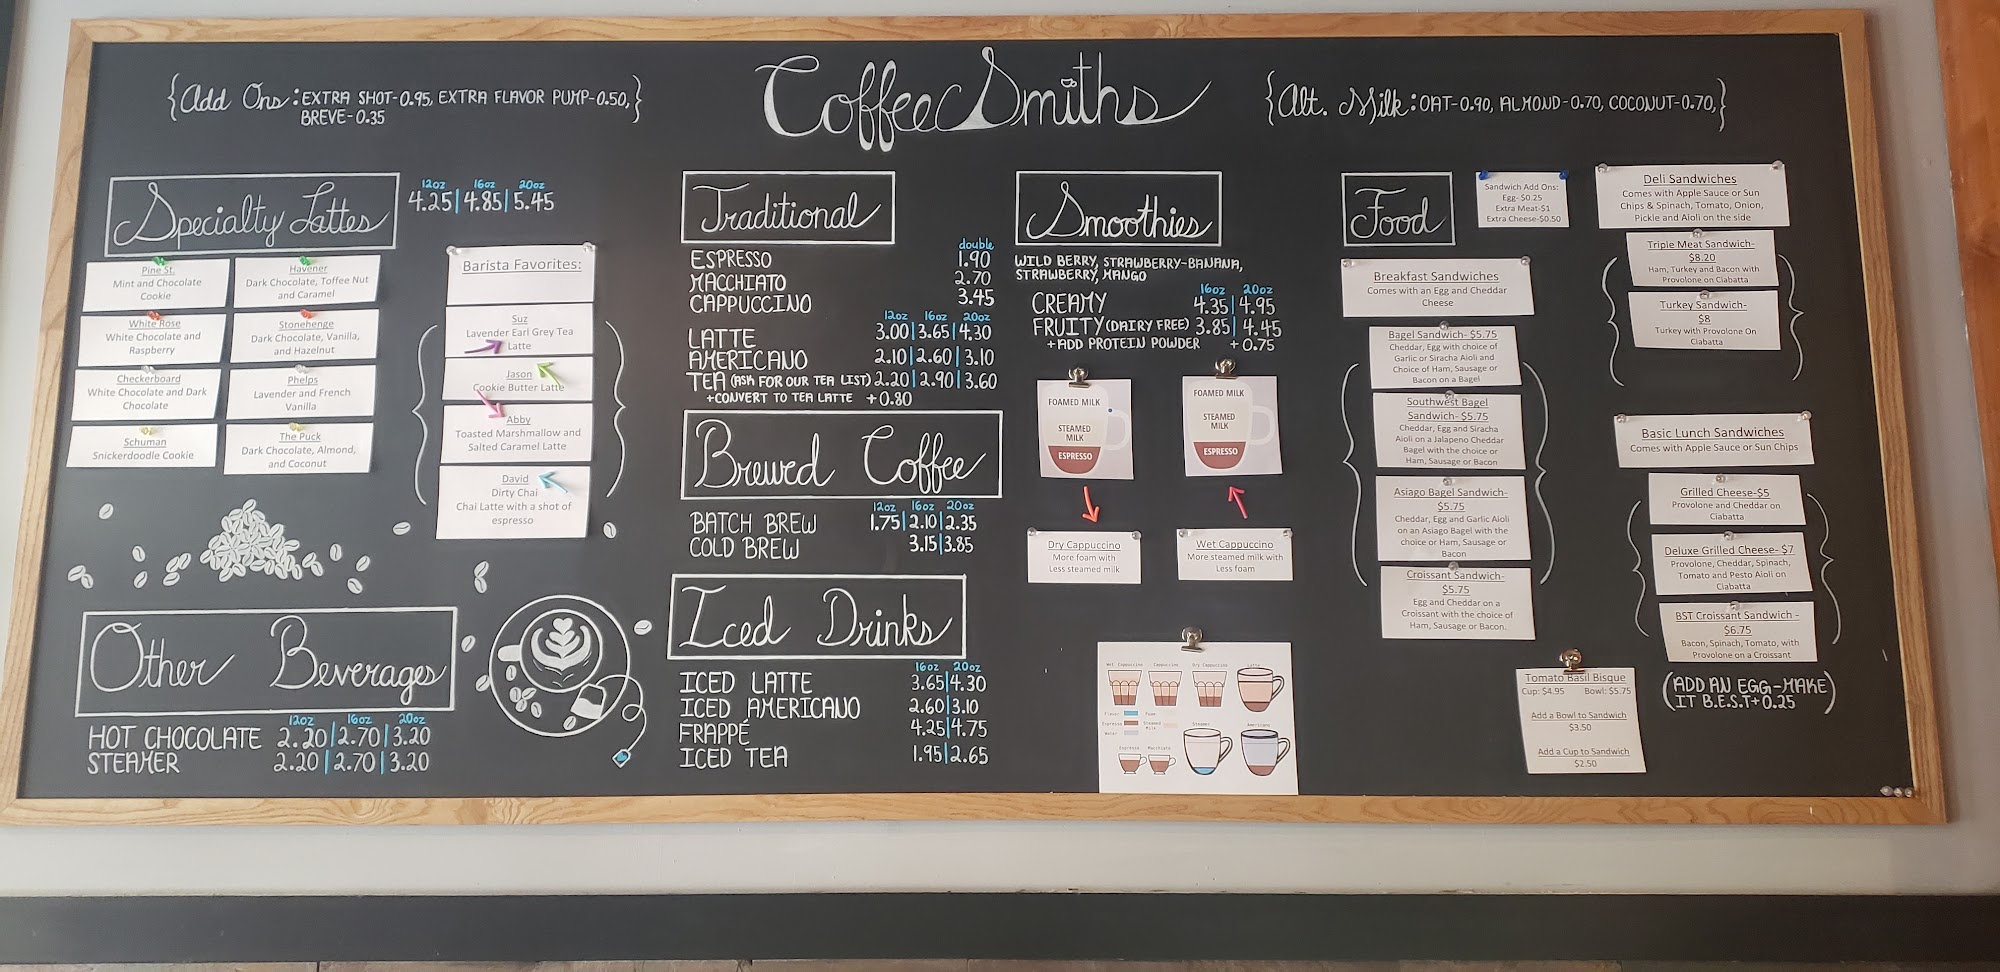 {Add Ons: EXTRA SHOT-0.95, EXTRA FLAVOR PUMP-0.50,}
BREVE-0.35
CoffeeSmiths
{Alt. Milk: OAT-0.90, ALMOND-0.70, COCONUT-0.70,}
Specialty Lattes
12oz 16oz 20oz
4.25|4.85|5.45
Pine St.
Mint and Chocolate
Cookie
Havener
Dark Chocolate, Toffee Nut
and Caramel
White Rose
White Chocolate and
Raspberry
Stonehenge
Dark Chocolate, Vanilla,
and Hazelnut
Checkerboard
White Chocolate and Dark
Chocolate
Phelps
Lavender and French
Vanilla
Schuman
Snickerdoodle Cookie
The Puck
Dark Chocolate, Almond,
and Coconut
Barista Favorites:
Suz
Lavender Earl Grey Tea
Latte
Jason
Cookie Butter Latte
Abby
Toasted Marshmallow and
Salted Caramel Latte
David
Dirty Chai
Chai Latte with a shot of
espresso
Other Beverages
12oz 16oz 20oz
HOT CHOCOLATE 2.20|2.70|3.20
STEAMER 2.20|2.70|3.20
Traditional
double
ESPRESSO 1.90
MACCHIATO 2.70
CAPPUCCINO 3.45
12oz 16oz 20oz
LATTE 3.00|3.65|4.30
AMERICANO 2.10|2.60|3.10
TEA (ASK FOR OUR TEA LIST) 2.20|2.90|3.60
+CONVERT TO TEA LATTE +0.80
Brewed Coffee
12oz 16oz 20oz
BATCH BREW 1.75|2.10|2.35
COLD BREW 3.15|3.85
Iced Drinks
16oz 20oz
ICED LATTE 3.65|4.30
ICED AMERICANO 2.60|3.10
FRAPPÉ 4.25|4.75
ICED TEA 1.95|2.65
Smoothies
WILD BERRY, STRAWBERRY-BANANA,
STRAWBERRY, MANGO
16oz 20oz
CREAMY 4.35|4.95
FRUITY (DAIRY FREE) 3.85|4.45
+ADD PROTEIN POWDER +0.75
FOAMED MILK
STEAMED
MILK
ESPRESSO
FOAMED MILK
STEAMED
MILK
ESPRESSO
Dry Cappuccino
More foam with
Less steamed milk
Wet Cappuccino
More steamed milk with
Less foam
Wet Cappuccino Cappuccino Dry Cappuccino Latte
Flavor Foam
Espresso Steamed
Milk
Water
Steamer Americano
Espresso Macchiato
Food
Sandwich Add Ons:
Egg- $0.25
Extra Meat-$1
Extra Cheese-$0.50
Breakfast Sandwiches
Comes with an Egg and Cheddar
Cheese
Bagel Sandwich- $5.75
Cheddar, Egg with choice of
Garlic or Siracha Aioli and
Choice of Ham, Sausage or
Bacon on a Bagel
Southwest Bagel
Sandwich- $5.75
Cheddar, Egg and Siracha
Aioli on a Jalapeno Cheddar
Bagel with the choice or
Ham, Sausage or Bacon
Asiago Bagel Sandwich-
$5.75
Cheddar, Egg and Garlic Aioli
on an Asiago Bagel with the
choice or Ham, Sausage or
Bacon
Croissant Sandwich-
$5.75
Egg and Cheddar on a
Croissant with the choice of
Ham, Sausage or Bacon.
Deli Sandwiches
Comes with Apple Sauce or Sun
Chips & Spinach, Tomato, Onion,
Pickle and Aioli on the side
Triple Meat Sandwich-
$8.20
Ham, Turkey and Bacon with
Provolone on Ciabatta
Turkey Sandwich-
$8
Turkey with Provolone On
Ciabatta
Basic Lunch Sandwiches
Comes with Apple Sauce or Sun Chips
Grilled Cheese-$5
Provolone and Cheddar on
Ciabatta
Deluxe Grilled Cheese- $7
Provolone, Cheddar, Spinach,
Tomato and Pesto Aioli on
Ciabatta
BST Croissant Sandwich -
$6.75
Bacon, Spinach, Tomato, with
Provolone on a Croissant
(ADD AN EGG-MAKE
IT B.E.S.T+0.25)
Tomato Basil Bisque
Cup: $4.95 Bowl: $5.75
Add a Bowl to Sandwich
$3.50
Add a Cup to Sandwich
$2.50